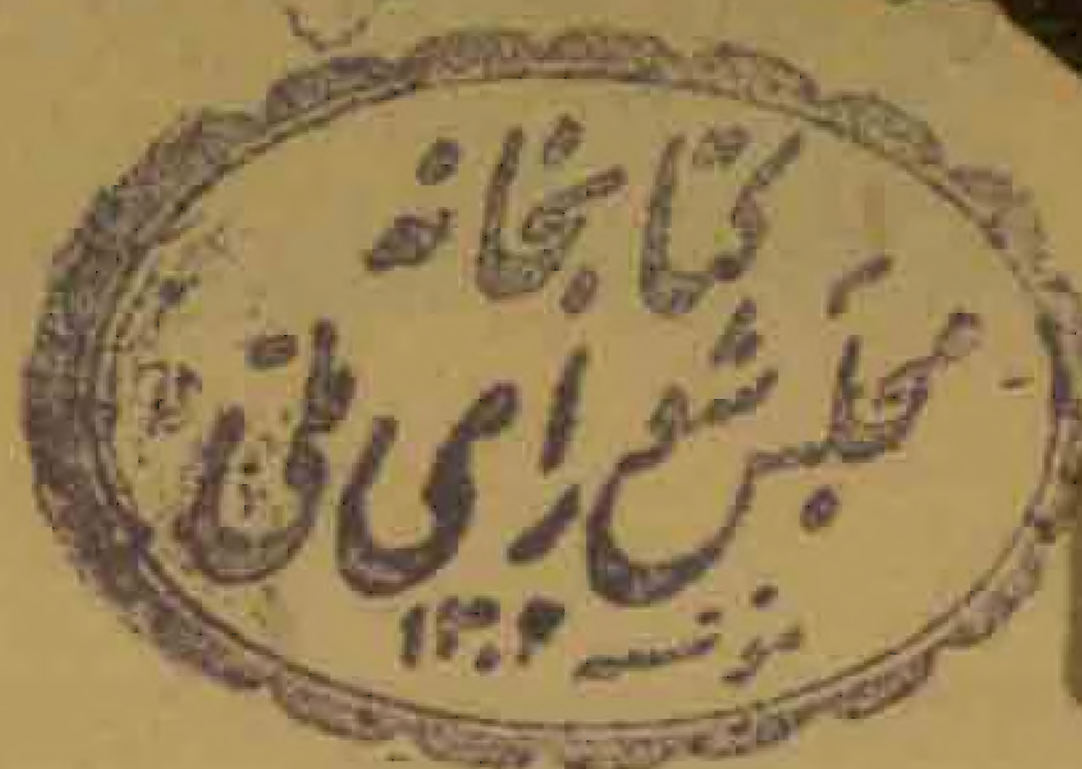 کتابخانه
مجلس شورای ملی
مؤسسه ۱۳۰۲